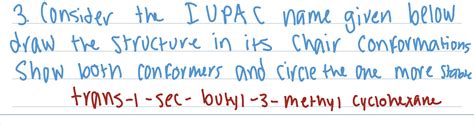 3. Consider the IUPAC name given below
draw the structure in its chair conformations
Show both conformers and circle the one more stable
trans-1-sec-butyl-3-methyl cyclohexane